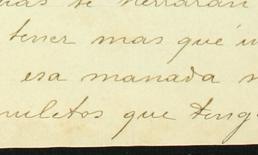 se herraran
tener mas que
esa manada
muletos que teng